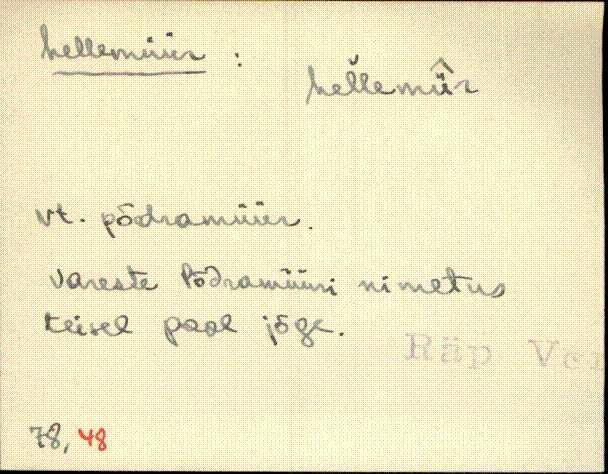 hellemüür :
hel̆lemü̂r
vt. põdramüür.
Vareste Põdramüüri nimetus
teisel pool jõge.
Räp Ver
78, 48